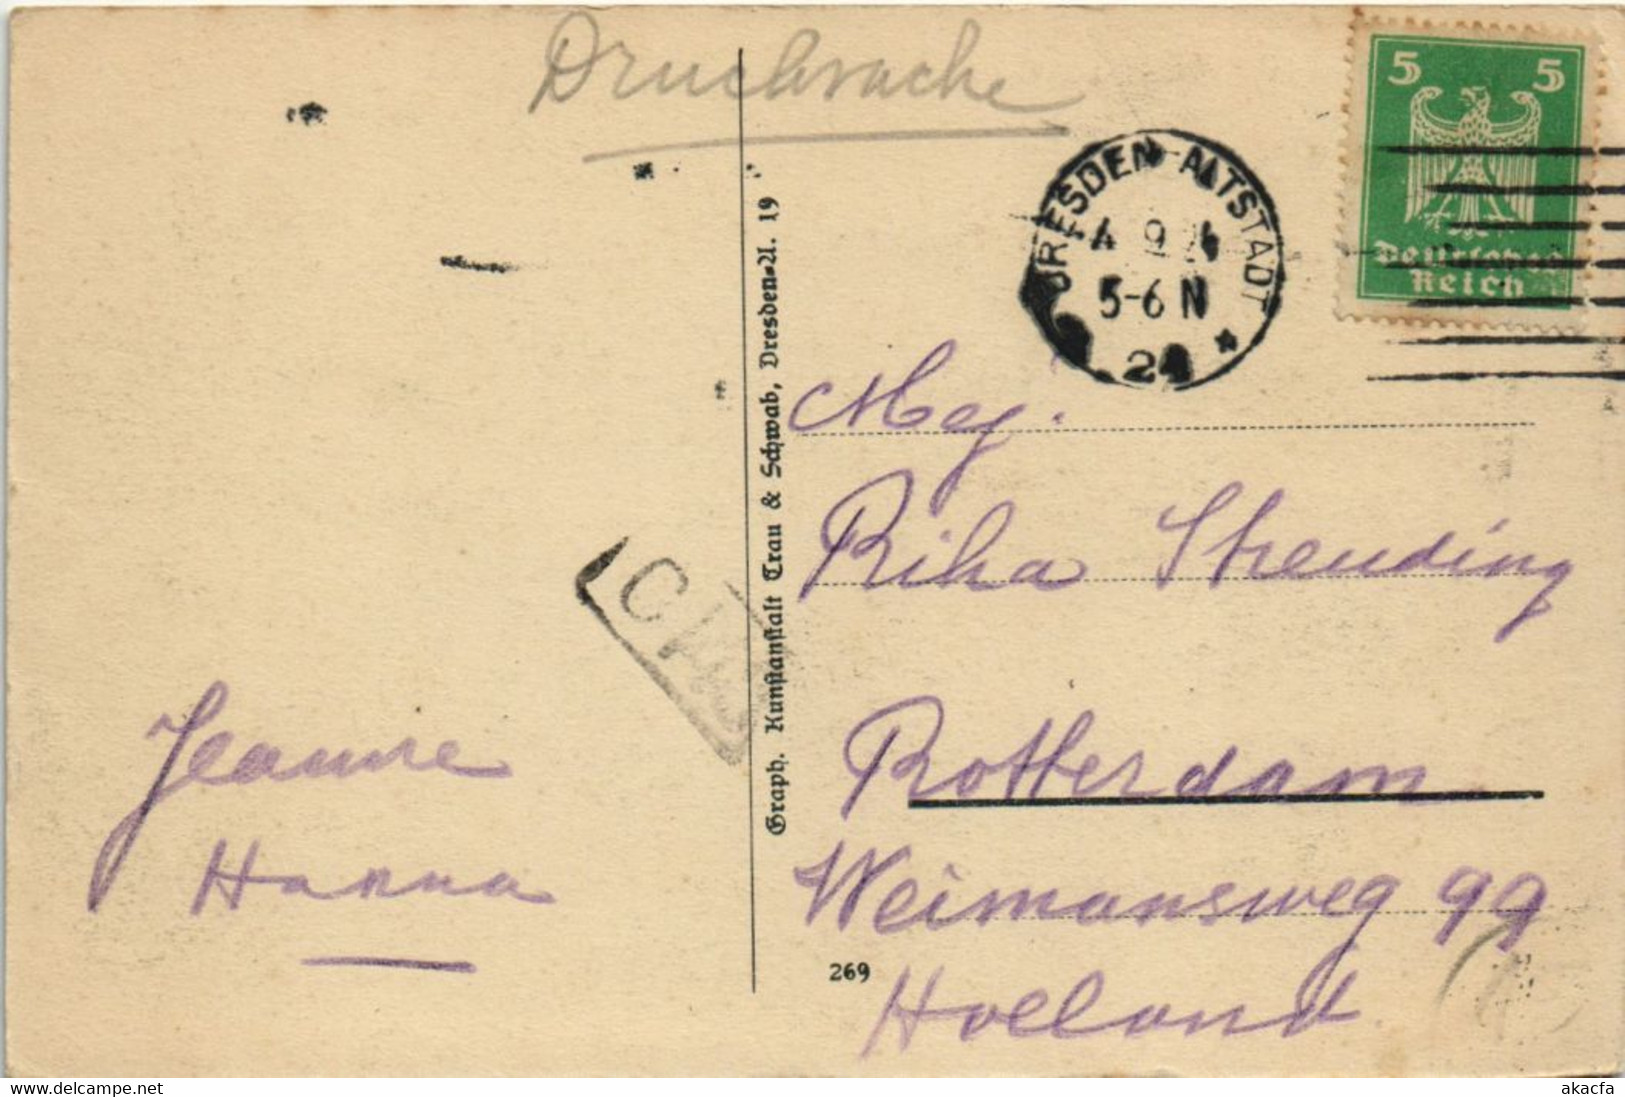 Drucksache
5 5
Deutsches
Reich
DRESDEN ALTSTADT
4 9 24
5-6 N
24 *
Mej.
Riha Streuding
Rotterdam
Weimansweg 99
Holland
Jeanne
Hanna
Graph. Kunstanstalt Trau & Schwab, Dresden-A. 19
269
delcampe.net
akacfa